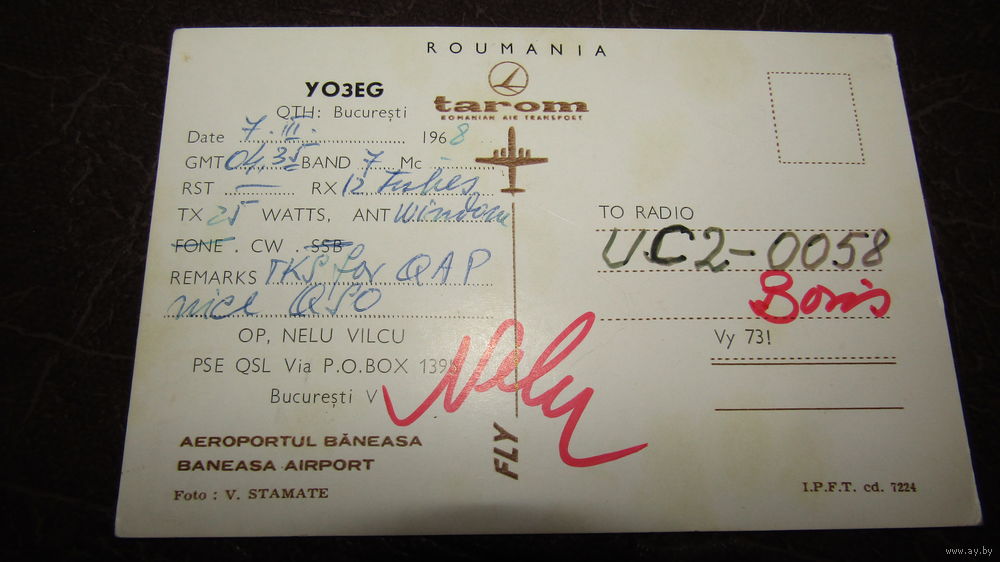 ROUMANIA
tarom
ROMANIAN AIR TRANSPORT
YO3EG
QTH: Bucureşti
Date 7. III. 1968
GMT 04,35 BAND 7 Mc
RST — RX 12 Tubes
TX 25 WATTS, ANT Windom
FONE . CW . SSB
REMARKS TKS for QAP
nice QSO
OP, NELU VILCU
PSE QSL Via P.O.BOX
Bucureşti V
AEROPORTUL BĂNEASA
BANEASA AIRPORT
Foto : V. STAMATE
Nelu
FLY
TO RADIO
UC2-0058
Boris
Vy 73!
I.P.F.T. cd. 7224
www.ay.by